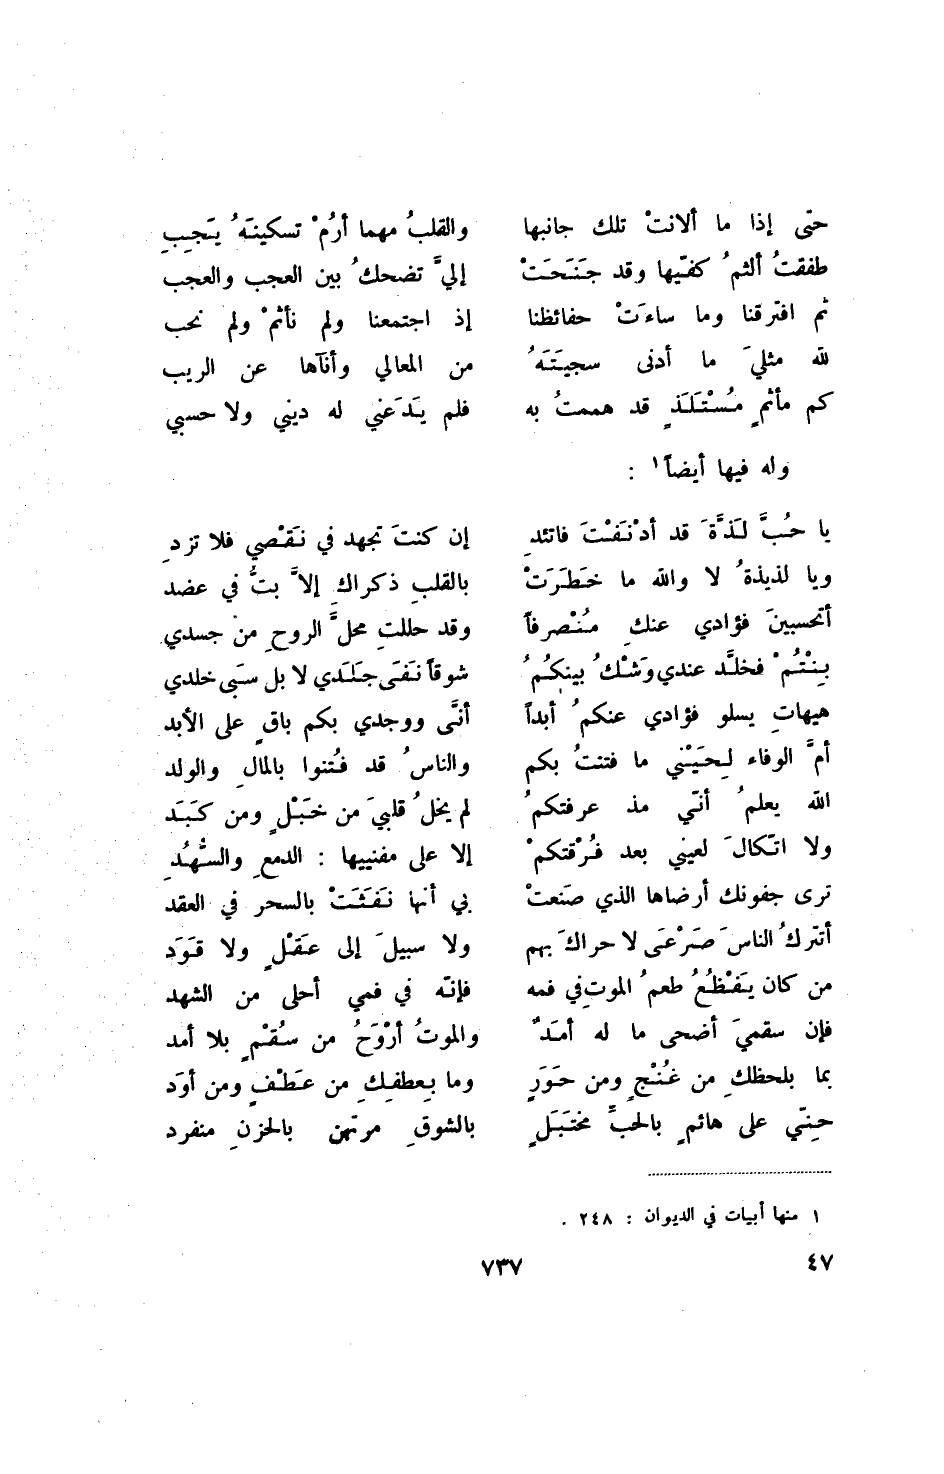 حتّى إذا ما ألانتْ تلك جانبها والقلبُ مهما أرُمْ تسكينَهُ يَجِبِ
طفقتُ ألثمُ كفّيها وقد جَنَحَتْ إليَّ تضحكُ بين العجب والعجب
ثم افترقنا وما ساءَتْ حفائظنا إذ اجتمعنا ولم نأثمْ ولم نحب
لله مثليَ ما أدنى سجيتَهُ من المعالي وأنآها عن الريب
كم مأثمٍ مُسْتَلَذٍ قد هممتُ به فلم يَدَعني له ديني ولا حسبي
وله فيها أيضاً١ :
يا حُبَّ لَذَّةَ قد أدْنَفْتَ فاتئدِ إن كنتَ تجهد في نَقْصي فلا تزدِ
ويا لذيذةُ لا والله ما خَطَرَتْ بالقلبِ ذكراكِ إلاَّ بتُّ في عضد
أتحسبينَ فؤادي عنكِ مُنْصرفاً وقد حللتِ محلَّ الروحِ من جسدي
بِنْتُمْ فخلَّد عندي وَشْكُ بينِكُمُ شوقاً نَفَى جَلَدي لا بل سَبَى خلدي
هيهاتِ يسلو فؤادي عنكمُ أبداً أنَّى ووجدي بكم باقٍ على الأبد
أمَّ الوفاء لِحَيْني ما فتنتُ بكم والناسُ قد فُتنوا بالمالِ والولد
الله يعلمُ أنّي مذ عرفتكمُ لم يخلُ قلبيَ من خَبَلٍ ومن كَبَد
ولا اتّكالَ لعيني بعد فُرْقتكمْ إلا على مفنييها : الدمعِ والسُّهُدِ
ترى جفونك أرضاها الذي صَنَعتْ بي أنها نَفَثَتْ بالسحر في العقد
أتترك الناسَ صَرْعَى لا حراكَ بهم ولا سبيلَ إلى عَقْلٍ ولا قوَد
من كان يَفْظُعُ طعمُ الموتِ في فمه فإنّه في فمي أحلى من الشهد
فإن سقميَ أضحى ما له أمَدٌ والموتُ أرْوَحُ من سُقْمٍ بلا أمد
بما بلحظكِ من غُنْجٍ ومن حَوَرٍ وما بِعطفِكِ من عَطْفٍ ومن أوَد
حِنّي على هائمٍ بالحبِّ مختَبَلٍ بالشوقِ مرتهن بالحزنِ منفرد
١ منها أبيات في الديوان : ٢٤٨ .
٤٧ ٧٣٧